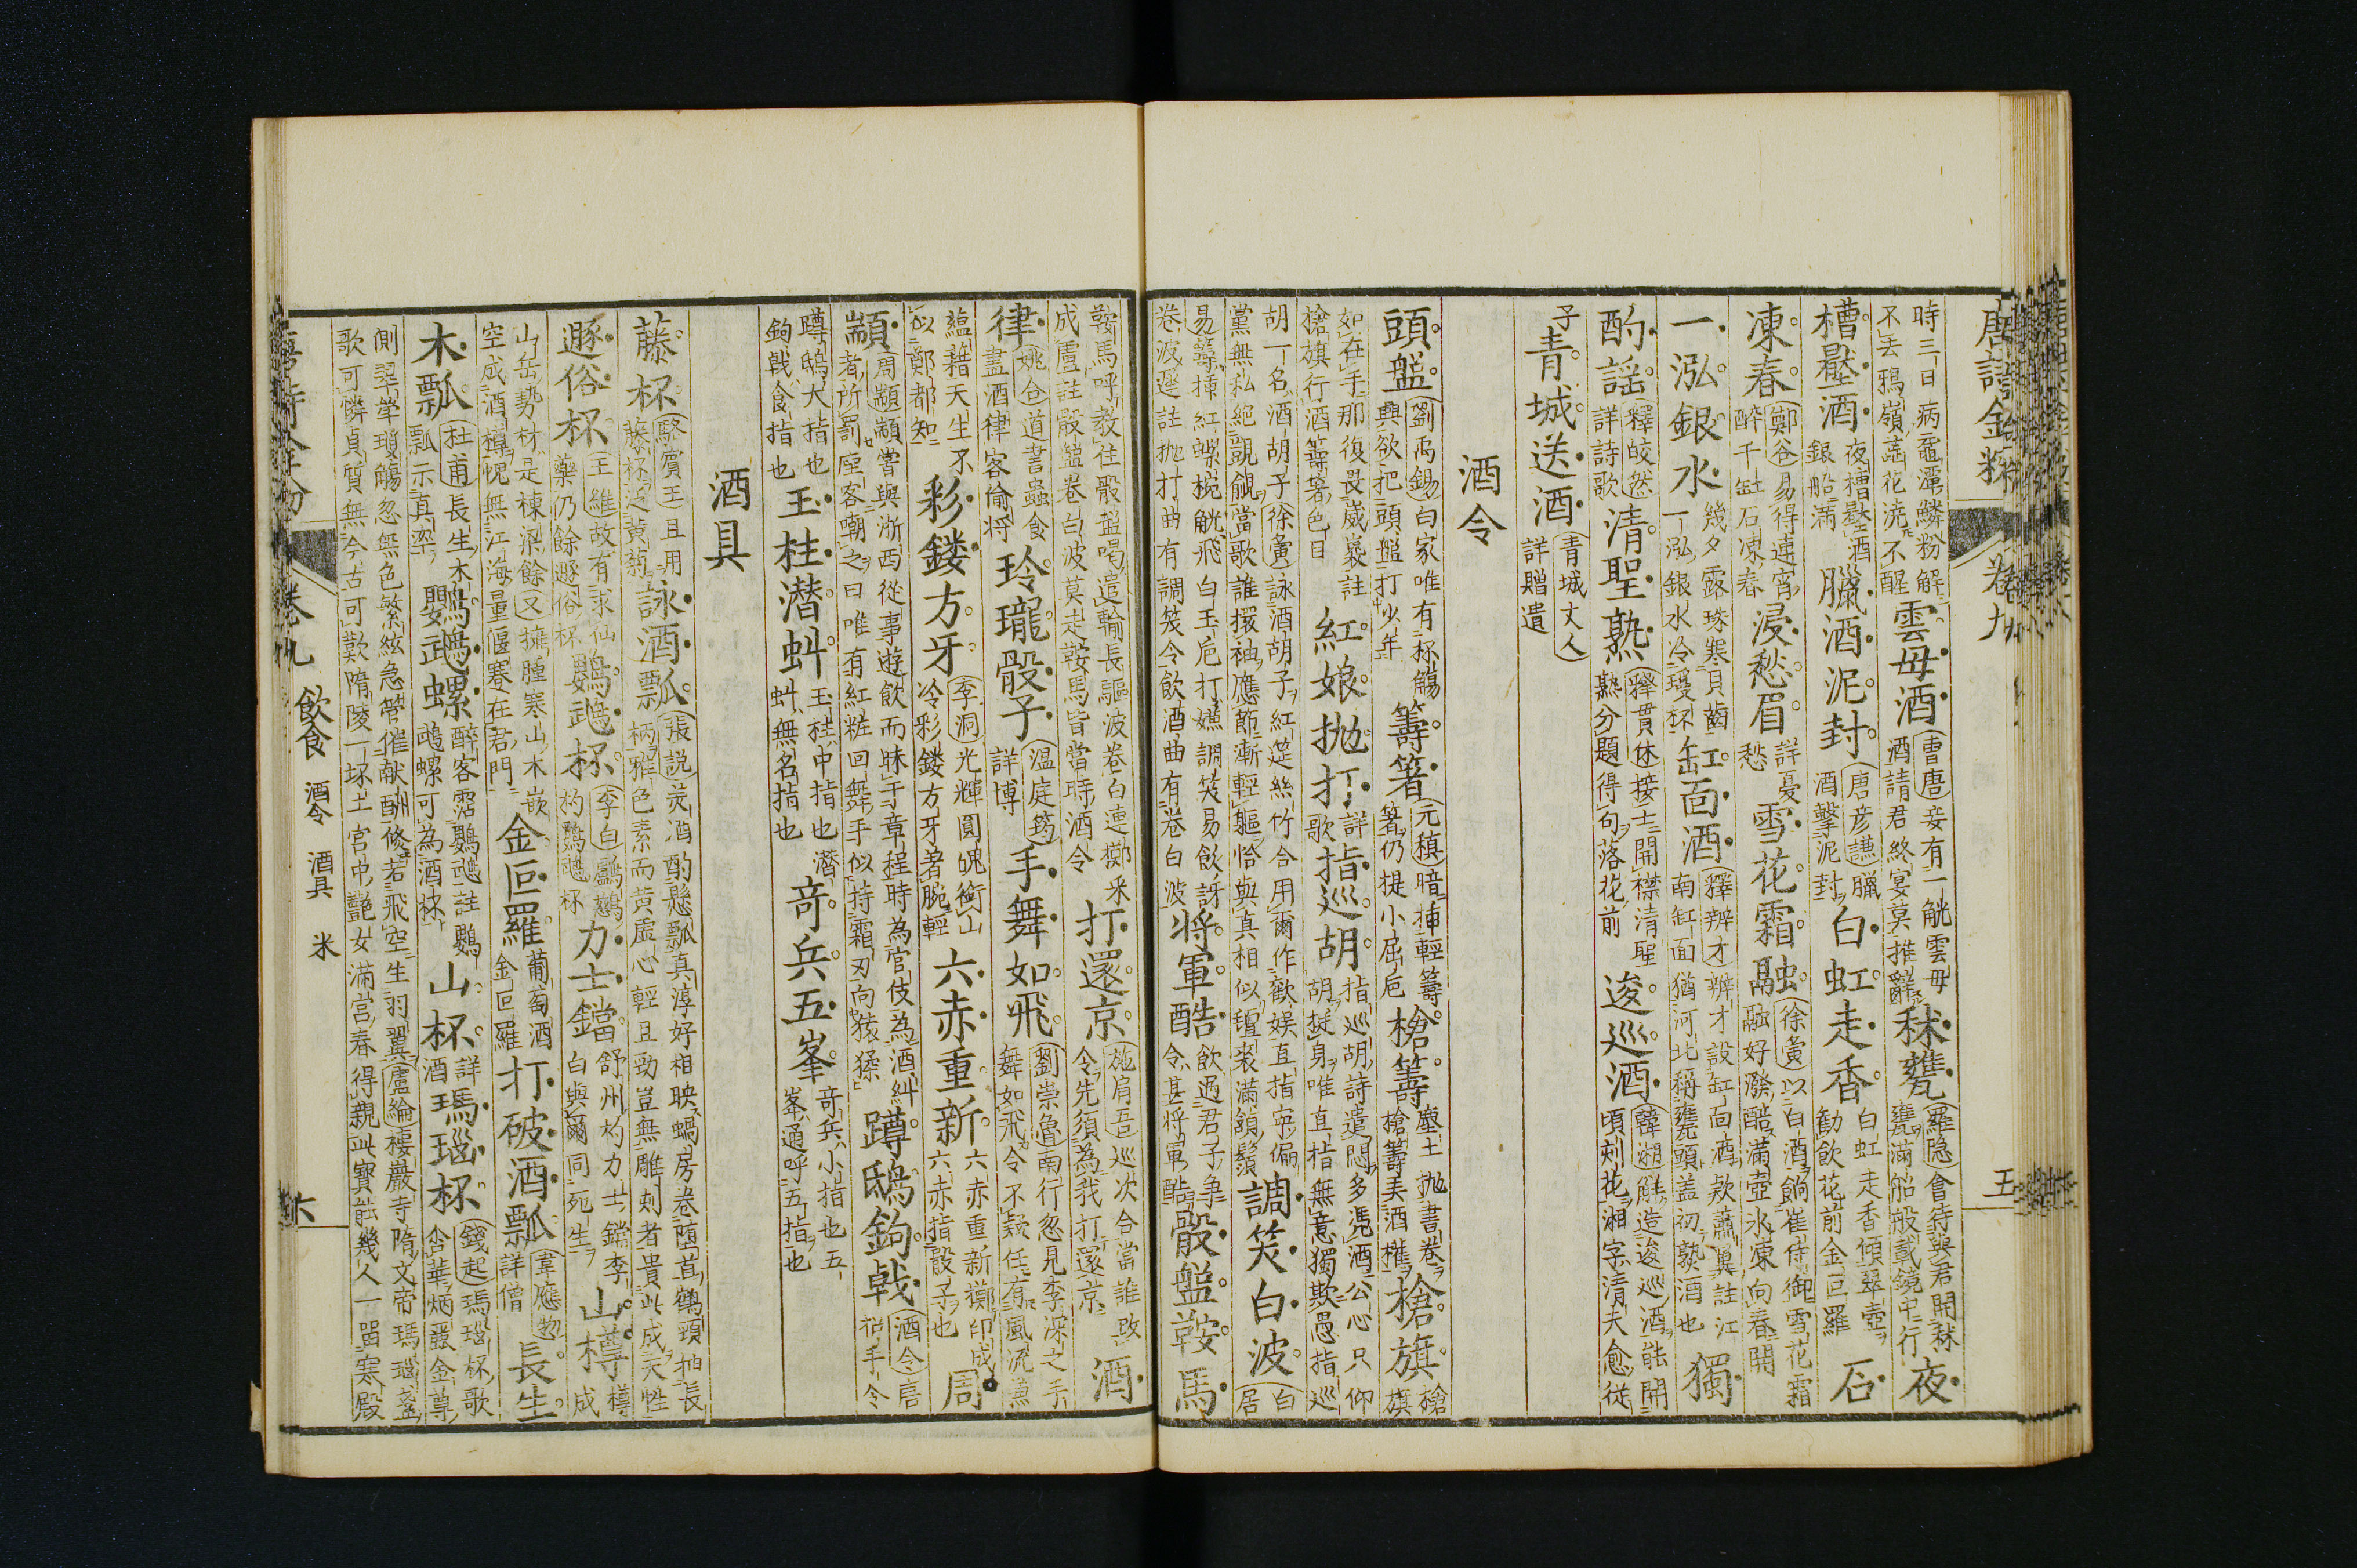 唐詩金粉 卷九 五
時三日病黿潭鱗粉解不去鴉嶺蘤花流不醒 雲母酒 曹唐妾有一觥雲母酒請君終宴莫推辭 秫甕 羅隱會待與君開秫甕滿船般載鏡中行 夜
槽壓酒 夜槽壓酒銀船滿 臘酒泥封 唐彦謙臘酒擊泥封 白虹走香 白虹走香傾翠壺勸飲花前金叵羅 石
凍春 鄭谷易得連宵醉千缸石凍春 浸愁眉 詳憂愁 雪花霜融 徐夤以白酒餉崔侍御雪花霜融好潑醅滿壺氷凍向春開
一泓銀水 幾夕露珠寒貝齒一泓銀水冷瓊杯 缸面酒 釋辨才辨才設缸面酒款蕭翼註江南缸面猶河北稱甕頭盖初熟酒也 獨
酌謡 釋皎然詳詩歌 清聖熟 釋貫休接士開襟清聖熟分題得句落花前 逡巡酒 韓湘解造逡巡酒能開頃刻花湘字清夫愈従
子 青城送酒 青城丈人詳贈遺
酒令
頭盤 劉禹錫白家唯有杯觴興欲把頭盤打少年 籌箸 元稹暗插輕籌箸仍提小屈卮 槍籌 塵土抛書卷槍籌弄酒權 槍旗 槍旗
如在手那復畏崴嵬註槍旗行酒籌箸色目 紅娘抛打 詳歌 指巡胡 指巡胡詩遣悶多憑酒公心只仰胡挺身唯直指無意獨欺愚指巡
胡一名酒胡子徐夤詠酒胡子紅筵絲竹合用爾作歡娯直指寧偏黨無私絶覬覦當歌誰擐袖應節漸輕軀恰與真相似氈裘滿頷鬚 調笑白波 白居
易籌插紅螺椀觥飛白玉卮打嫌調笑易飲訝卷波遲註抛打曲有調笑令飲酒曲有卷白波 将軍酷 飲過君子争令甚将軍酷 骰盤鞍馬
鞍馬呼教住骰盤喝遣輸長驅波卷白連擲采成盧註骰盤卷白波莫走鞍馬皆當時酒令 打還京 施肩吾巡次合當誰改令先須為我打還京 酒
律 姚合道書蟲食盡酒律客偷将 玲瓏骰子 温庭筠詳博 手舞如飛 劉崇魯南行忽見李深之手舞如飛令不疑任有風流兼
蘊藉天生不似鄭都知 彩鏤方牙 李洞光輝圓魄銜山冷彩鏤方牙著腕輕 六赤重新 六赤重新擲印成六赤指骰子也 周
顓 周顓顓嘗與浙西從事遊飲而昧于章程時為官伎為酒糾者所罰座客嘲之曰唯有紅粧回舞手似持霜刃向猿猱 蹲鴟鉤戟 酒令言招手令
蹲鴟大指也鉤戟食指也 玉柱潜虯 玉柱中指也潛虯無名指也 竒兵五峯 竒兵小指也五峯通呼五指也
酒具
藤杯 駱賓王且用藤杯泛黄菊 詠酒瓢 張説美酒酌懸瓢真淳好相映蝸房卷堕首鶴頸抽長柄雅色素而黄虚心輕且勁豈無雕刻者貴此成天性
遯俗杯 王維故有求仙藥仍餘遯俗杯 鸚鵡杯 李白鸕鷀杓鸚鵡杯 力士鐺 舒州杓力士鐺李白與爾同死生 山樽 樽成
山岳勢材是棟梁餘又擁腫寒山木嵌空成酒樽愧無江海量偃蹇在君門 金叵羅 葡萄酒金叵羅 打破酒瓢 韋應物詳僧 長生
木瓢 杜甫長生木瓢示真率 鸚鵡螺 醉客霑鸚鵡註鸚鵡螺可為酒杯 山杯 詳酒 瑪瑙杯 錢起瑪瑙杯歌含華炳蘂金尊
側翠斝瓊觴忽無色繁絃急管催献酬倏若飛空生羽翼盧綸棲巖寺隋文帝瑪瑙盞歌可憐貞質無今古可歎隋陵一坏土宮中艶女滿宮春得親此寶能幾人一留寒殿
卷九 飲食 酒令 酒具 米 六